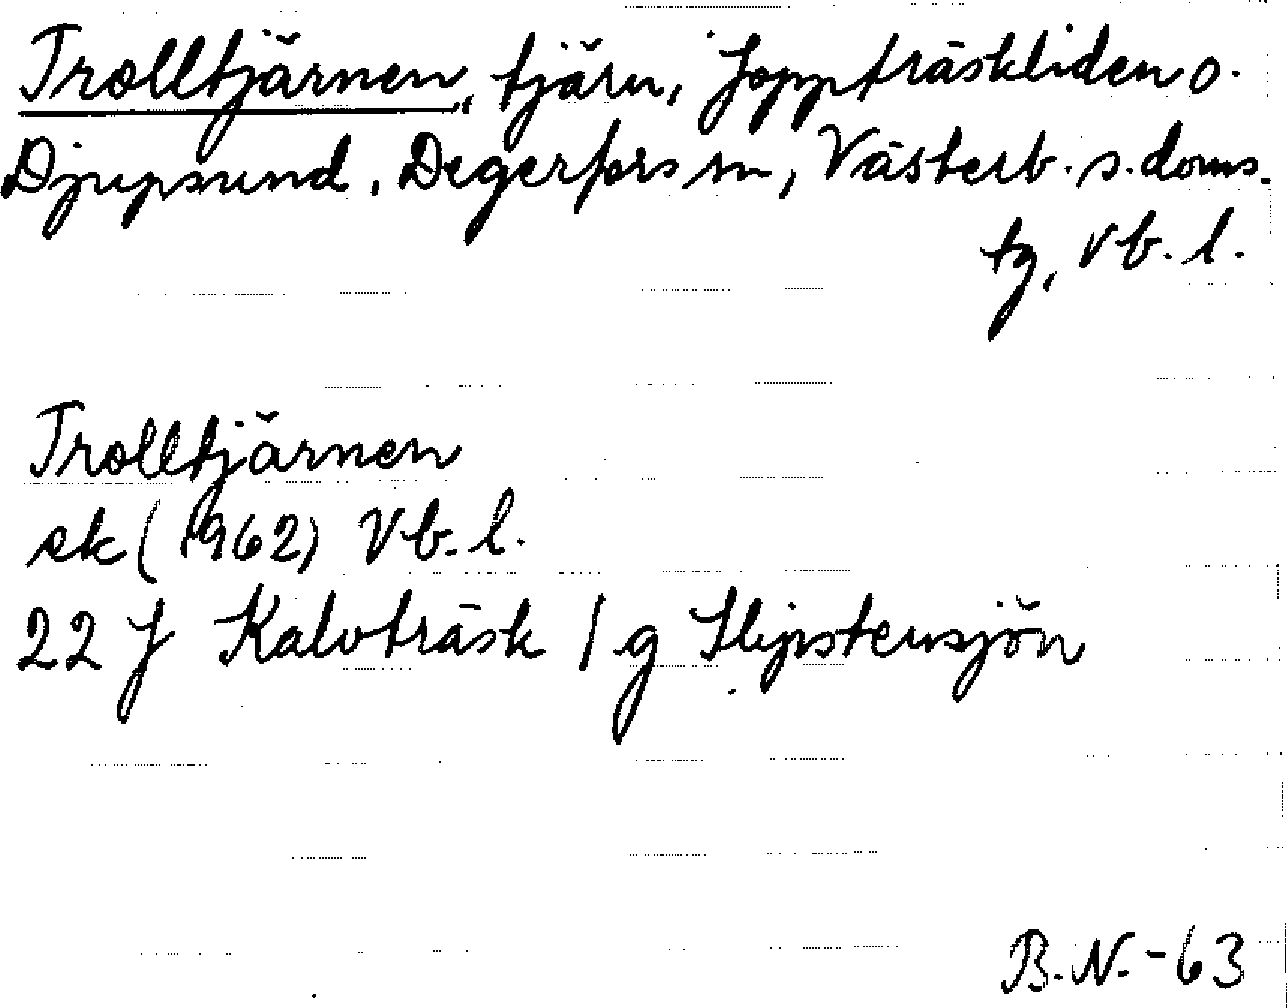 Trolltjärnen, tjärn, Joppträskliden o.
Djupsund, Degerfors sn, Västerb. s. doms.
tg, Vb. l.
Trolltjärnen
ek (1962) Vb. l.
22 J Kalvträsk / g Slipstensjön
B.N. -63